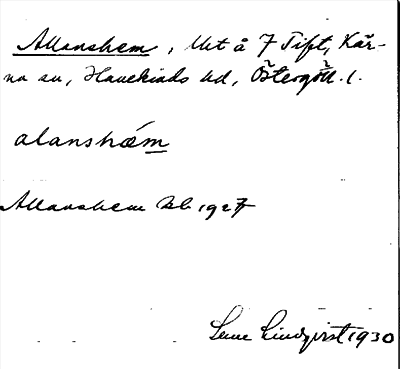 Allanshem, Lht å 7 Tift, Kär-
na sn, Hanekinds hd, Östergötl. l.
alanshǽm
Allanshem Jb. 1927
Lindqvist 1930